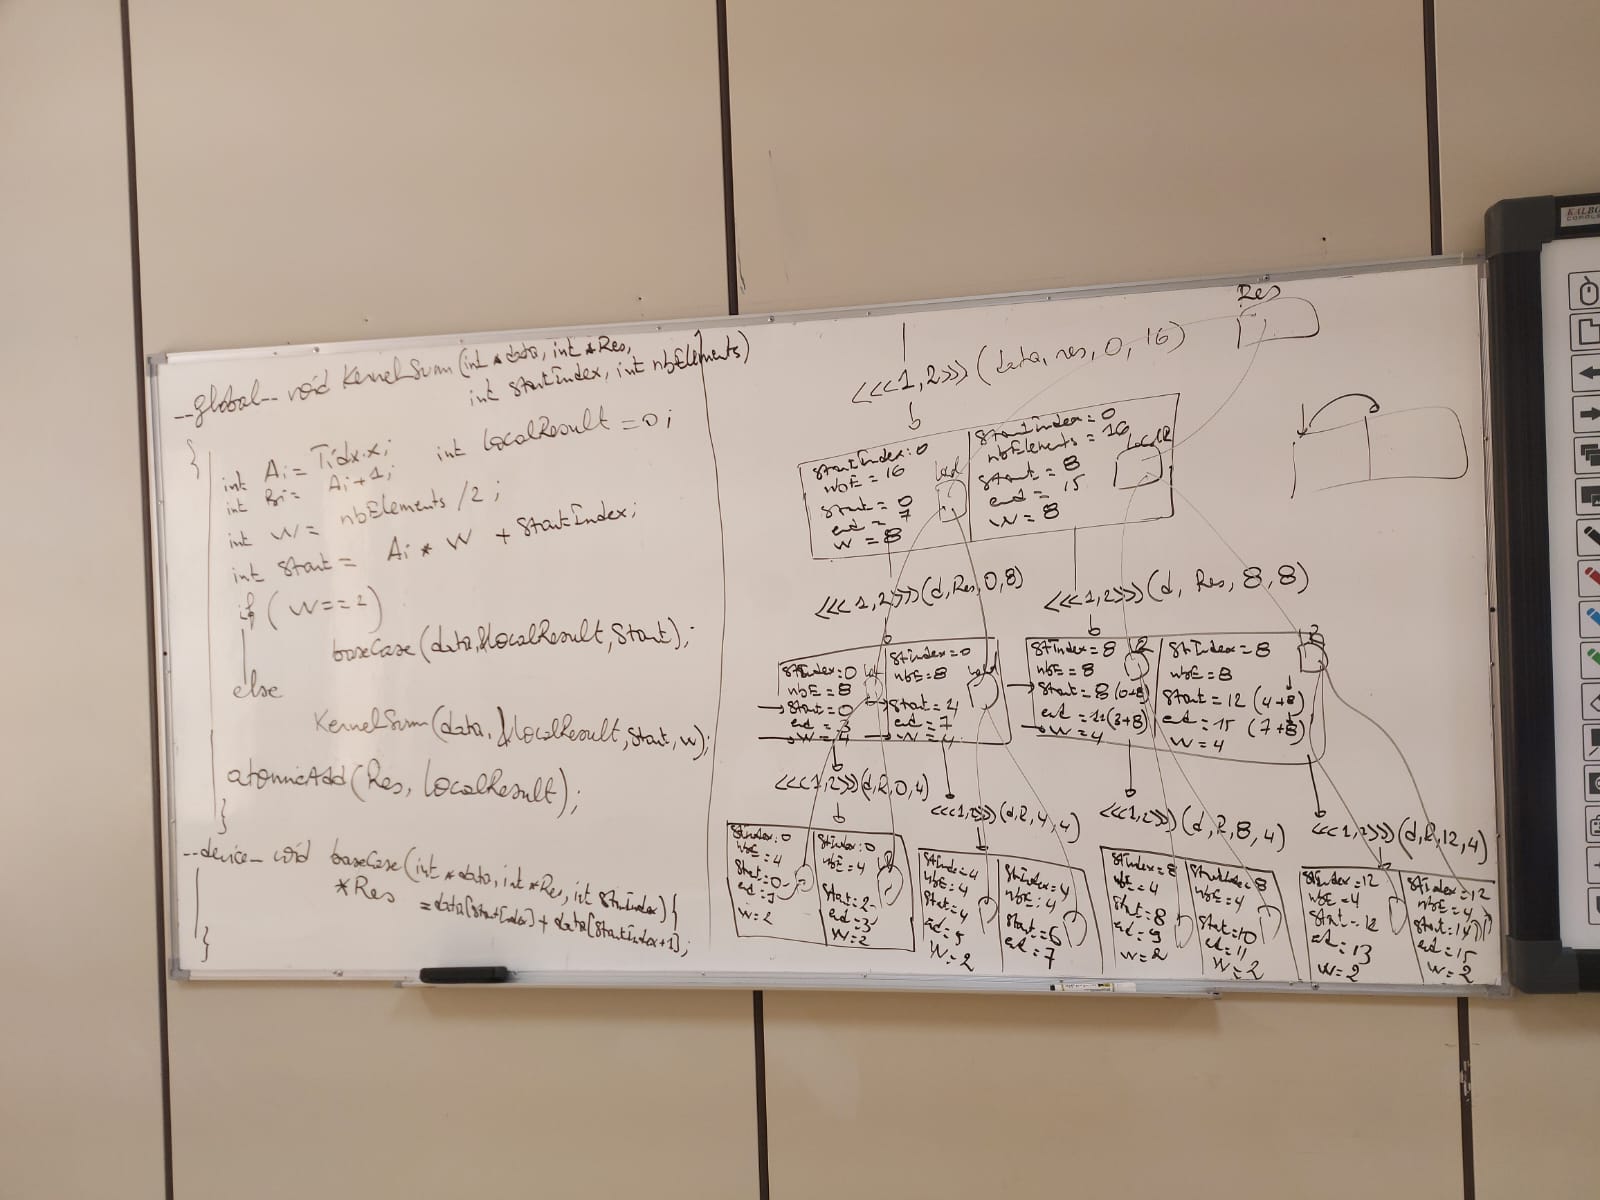 __global__ void KernelSum(int *data, int *Res,
int StartIndex, int nbElements)
{
int Ai = Tidx.x; int LocalResult = 0;
int Bi = Ai+1;
int W = nbElements /2;
int Start = Ai * W + StartIndex;
if (W==2)
baseCase(data,&LocalResult,Start);
else
KernelSum(data,&LocalResult,Start,w);
atomicAdd(Res, LocalResult);
}
__device__ void baseCase(int *data, int *Res, int StrIndex){
*Res = data[StartIndex] + data[StartIndex+1];
}
Res
<<<1,2>>>(data,res,0,16)
StartIndex:0
nbE = 16
Start = 0
end = 7
W = 8
StartIndex=0
nbElements = 16
LocalR
Start = 8
end = 15
W = 8
<<<1,2>>>(d,Res,0,8)
<<<1,2>>>(d, Res, 8,8)
StIndex:0
nbE = 8
Start=0
end = 3
W = 4
StIndex=0
nbE=8
Start = 4
end = 7
W = 4
StIndex = 8
nbE = 8
Start = 8 (0+8)
end = 11(3+8)
W = 4
R
StIndex = 8
nbE = 8
Start = 12 (4+8)
end = 15 (7+8)
W = 4
<<<1,2>>>(d,R,0,4)
<<<1,2>>>(d,R,4,4)
<<<1,2>>>(d,R,8,4)
<<<1,2>>>(d,R,12,4)
StIndex:0
nbE = 4
Start=0
W=2
StIndex:0
nbE=4
Start=2
end=3
W=2
StIndex=4
nbE=4
Start=4
end=5
W=2
StIndex=4
nbE=4
Start=6
end=7
StIndex=8
nbE=4
Start=8
end=9
W=2
nbE=4
Start=10
el=11
W=2
StIndex=12
nbE=4
Start=12
el=13
W=2
StIndex=12
nbE=4
Start=14
end=15
W=2